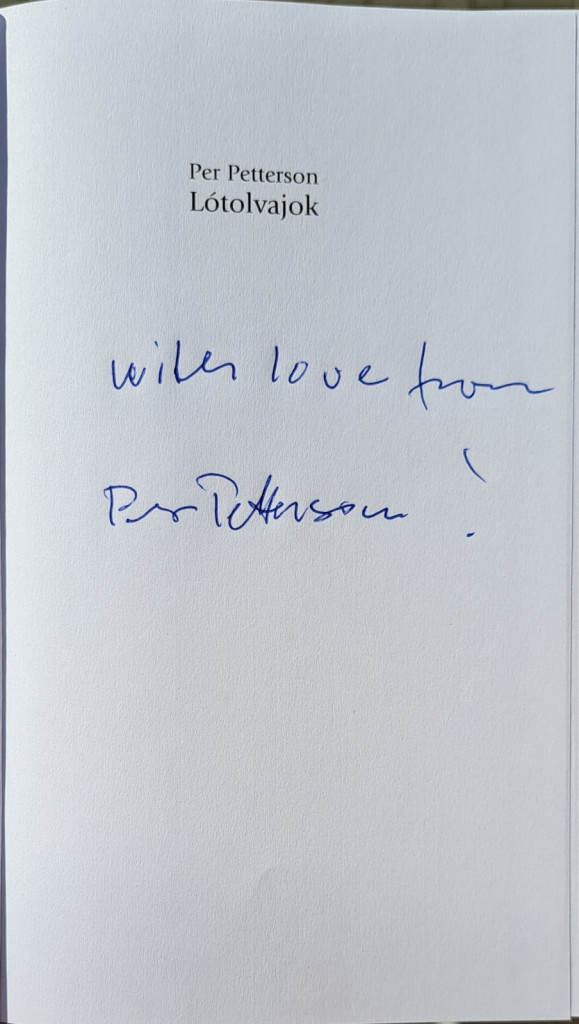 Per Petterson
Lótolvajok
with love from
Per Petterson !